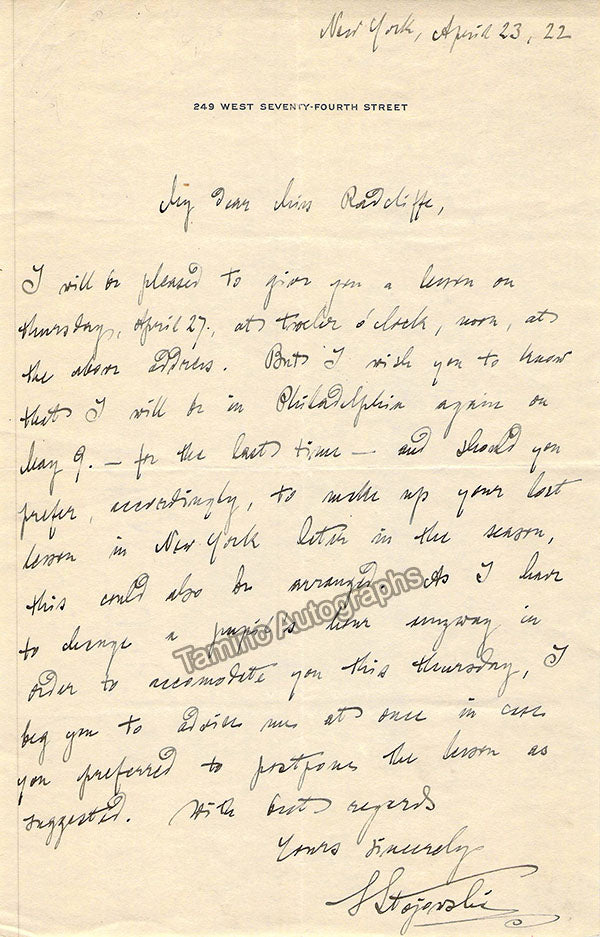 New York, April 23, 22
249 WEST SEVENTY-FOURTH STREET
My dear Miss Radcliffe,
I will be pleased to give you a lesson on
thursday, April 27., at twelve o'clock, noon, at
the above address. But I wish you to know
that I will be in Philadelphia again on
May 9. — for the last time — and should you
prefer, accordingly, to make up your lost
lesson in New York later in the season,
this could also be arranged. As I have
to change a pupil's hour anyway in
Tamino Autographs
order to accomodate you this thursday, I
beg you to advise me at once in case
you preferred to postpone the lesson as
suggested. With best regards
Yours sincerely
S Stojowski